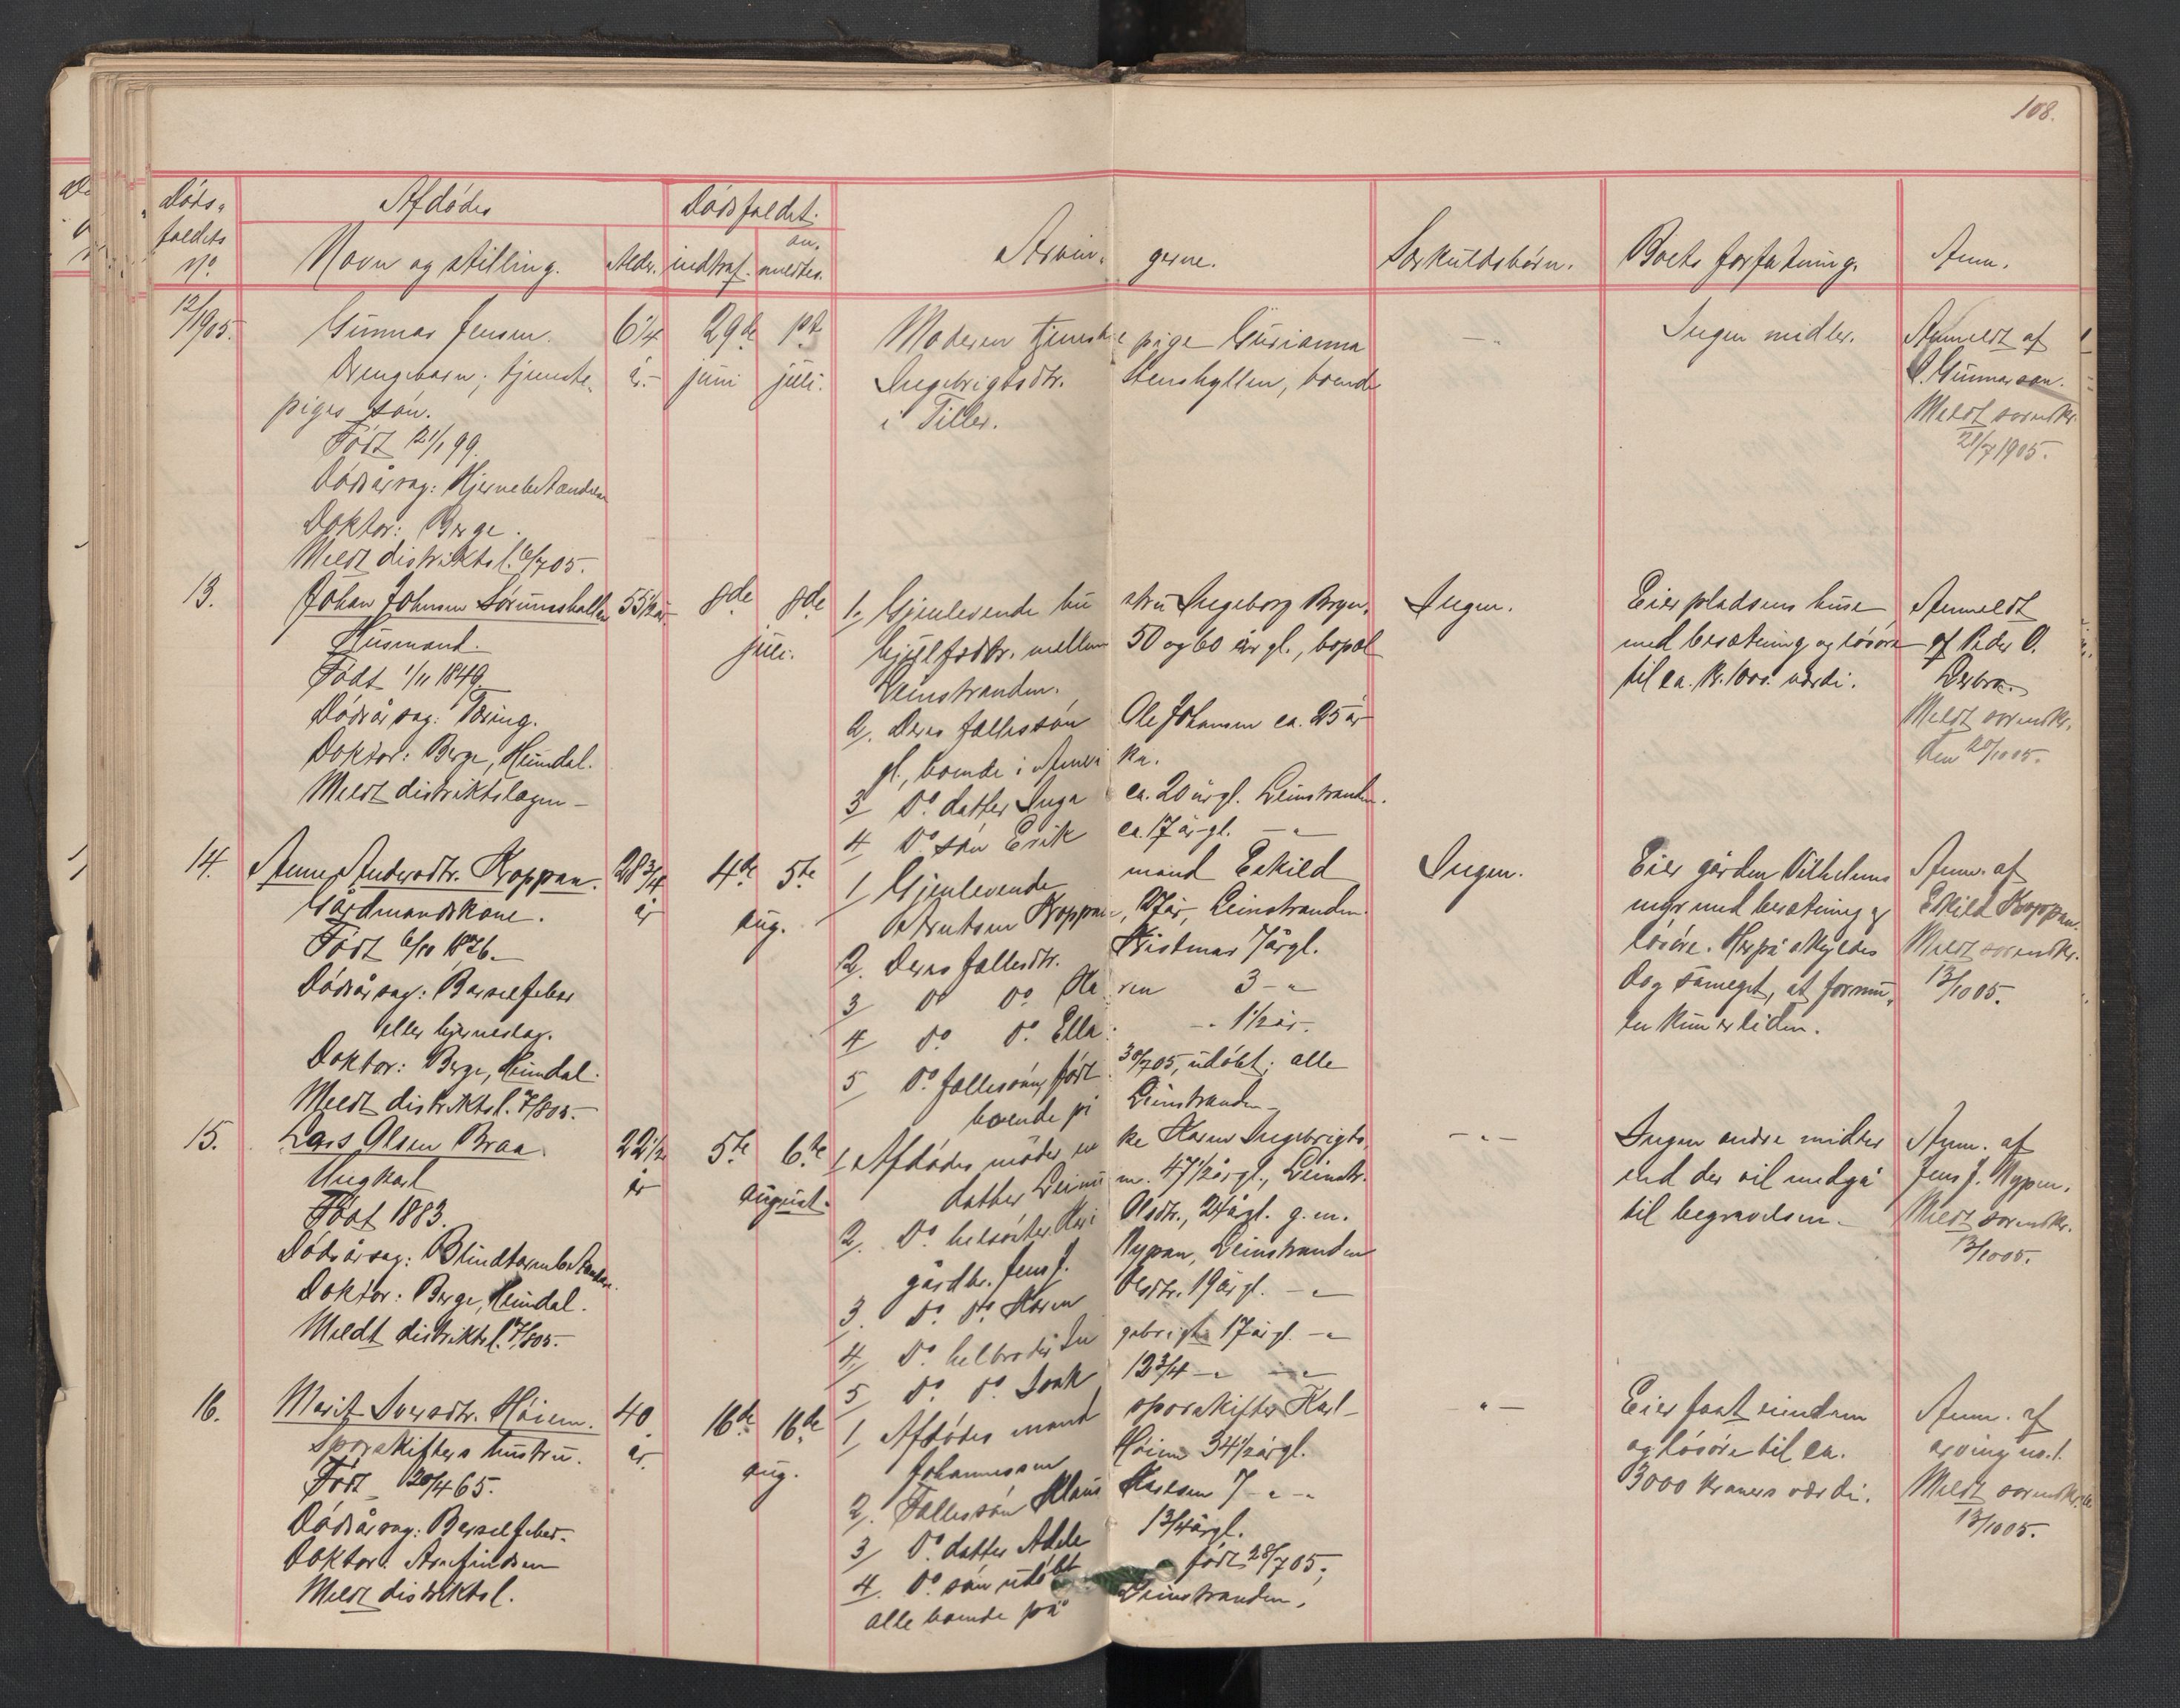 108.
Døds-
faldets
No.
Afdødes
Navn og stilling.
Alder.
Dødsfaldet.
indtraf.
an-
meldtes.
Arvin- gerne.
Særkuldsbørn.
Boets forfatning.
Anm.
12/1905.
Gunnar Jensen.
Drengebarn, tjeneste-
piges søn.
Født 21/1 99.
Dødsårsag: Hjernebetændelse
Doktor: Berge.
Meldt distriktsl. 6/7 05.
6 1/4
år.-
29de
juni
1ste
juli.
Moderen tjeneste pige Gurianna
Ingebrigtsdtr. Stenshyllen, boende
i Tiller.
- " -
Ingen midler.
Anmeldt af
O. Gunnarson.
Meldt sorenskr.
21/7 1905.
13.
Johan Johnsen Sørumshallen
Husmand.
Født 1/11 1849.
Dødsårsag: Tæring.
Doktor: Berge, Heimdal.
Meldt distriktslægen -
55 1/2 år.
8de 8de
juli.
1. Gjenlevende hustru Ingeborg Bryn-
hjulfsdtr. mellem 50 og 60 år gl., bopæl
Leinstranden.
2. Deres fællessøn Ole Johansen ca. 25 år
gl., boende i Amerika.
3 Do. datter Inga ca. 20 årgl. Leinstranden.
4 Do. søn Erik ca. 17 år gl. - " -
Ingen.
Eier pladsens huse
med besætning og løsøre
til ca. kr. 1000 værdi.
Anmeldt
af Peder O.
Meldt sorenskr.
den 20/10 05.
14.
Anne Andersdtr. Kroppan.
Gårdmandskone.
Født 6/10 1876.
Dødsårsag: Barselfeber
eller hjerneslag.
Doktor: Berge, Heimdal.
Meldt distriktsl. 7/8 05.-
28 3/4
år
4de 5te
aug.
1 Gjenlevende mand Eskild
Arntsen Kroppan, 27 år, Leinstranden.
2. Deres fællesdtr. Kristmar 7 årgl.
3 Do Do. Karen 3 - " -
4 Do. Do. Ella - " 1 1/2 år.
5 Do. fællessøn, født 30/7 05, udøbt; alle
boende på Leinstranden -
Ingen.
Eier gården Vilhelms
myr med besætning og
løsøre. Herpå skyldes
dog såmeget, at formu-
en kun er liden.
Anm. af
Eskild Kroppan.
Meldt sorenskr.
13/10 05.
15.
Lars Olsen Braa
Ungkarl
Født 1883.
Dødsårsag: Blindtarmbetændelse.
Doktor: Berge, Heimdal.
Meldt distriktsl. 7/8 05.-
22 1/2
år
5te 6te
august.
1 Afdødes moder, enke Karen Ingebrigts
datter Leinum. 47 1/2 årgl., Leinstr.
2. Do. helsøster Kari Olsdtr., 24 årgl. g. m.
gårdbr. Jens J. Nypan, Leinstranden
3. Do. Do. Karen Olsdtr. 19 årgl. - " -
4. Do. helbroder Ingebrigt 17 årgl. - " -
5 Do. Do. Isak 12 3/4 - " - - " -
- " -
Ingen andre midler
end der vil medgå
til begravelsen.-
Anm. af
Jens J. Nypan.
Meldt sorenskr.
13/10 05.
16.
Marit Iversdtr. Høiem.
Sporskifters hustru.
Født 20/4 65.
Dødsårsag: Barselfeber.
Doktor: Arnfindsen
Meldt distriktsl.
40
år.
16de 16de
aug.
1 Afdødes mand sporskifter Karl
Johannessen Høiem 34 1/2 årgl.
2. Fællessøn Klaus Karlsen 7 - " - "
3 Do. datter Adele 1 3/4 årgl.
4. Do. søn udøbt født 28/7 05;
alle boende på Leinstranden.
- " -
Eier fast eiendom
og løsøre til ca.
3000 kroners værdi.
Anm. af
arving no. 1.
Meldt sorenskr.
13/10 05.